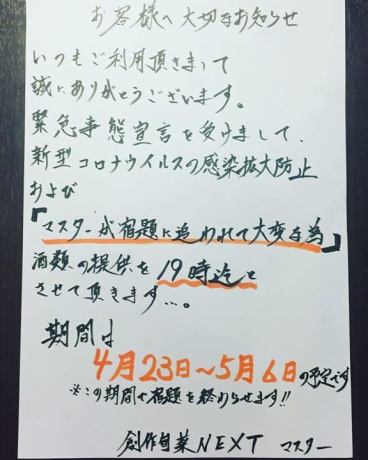 お客様へ 大切なお知らせ
いつもご利用頂きまして
誠にありがとうございます。
緊急事態宣言を受けまして、
新型コロナウイルスの感染拡大防止
および
「マスターが宿題に追われて大変な為」
酒類の提供を19時迄と
させて頂きます…。
期間は
4月23日〜5月6日の予定です
※この期間で宿題を終わらせます!!
創作旬菜NEXT マスター